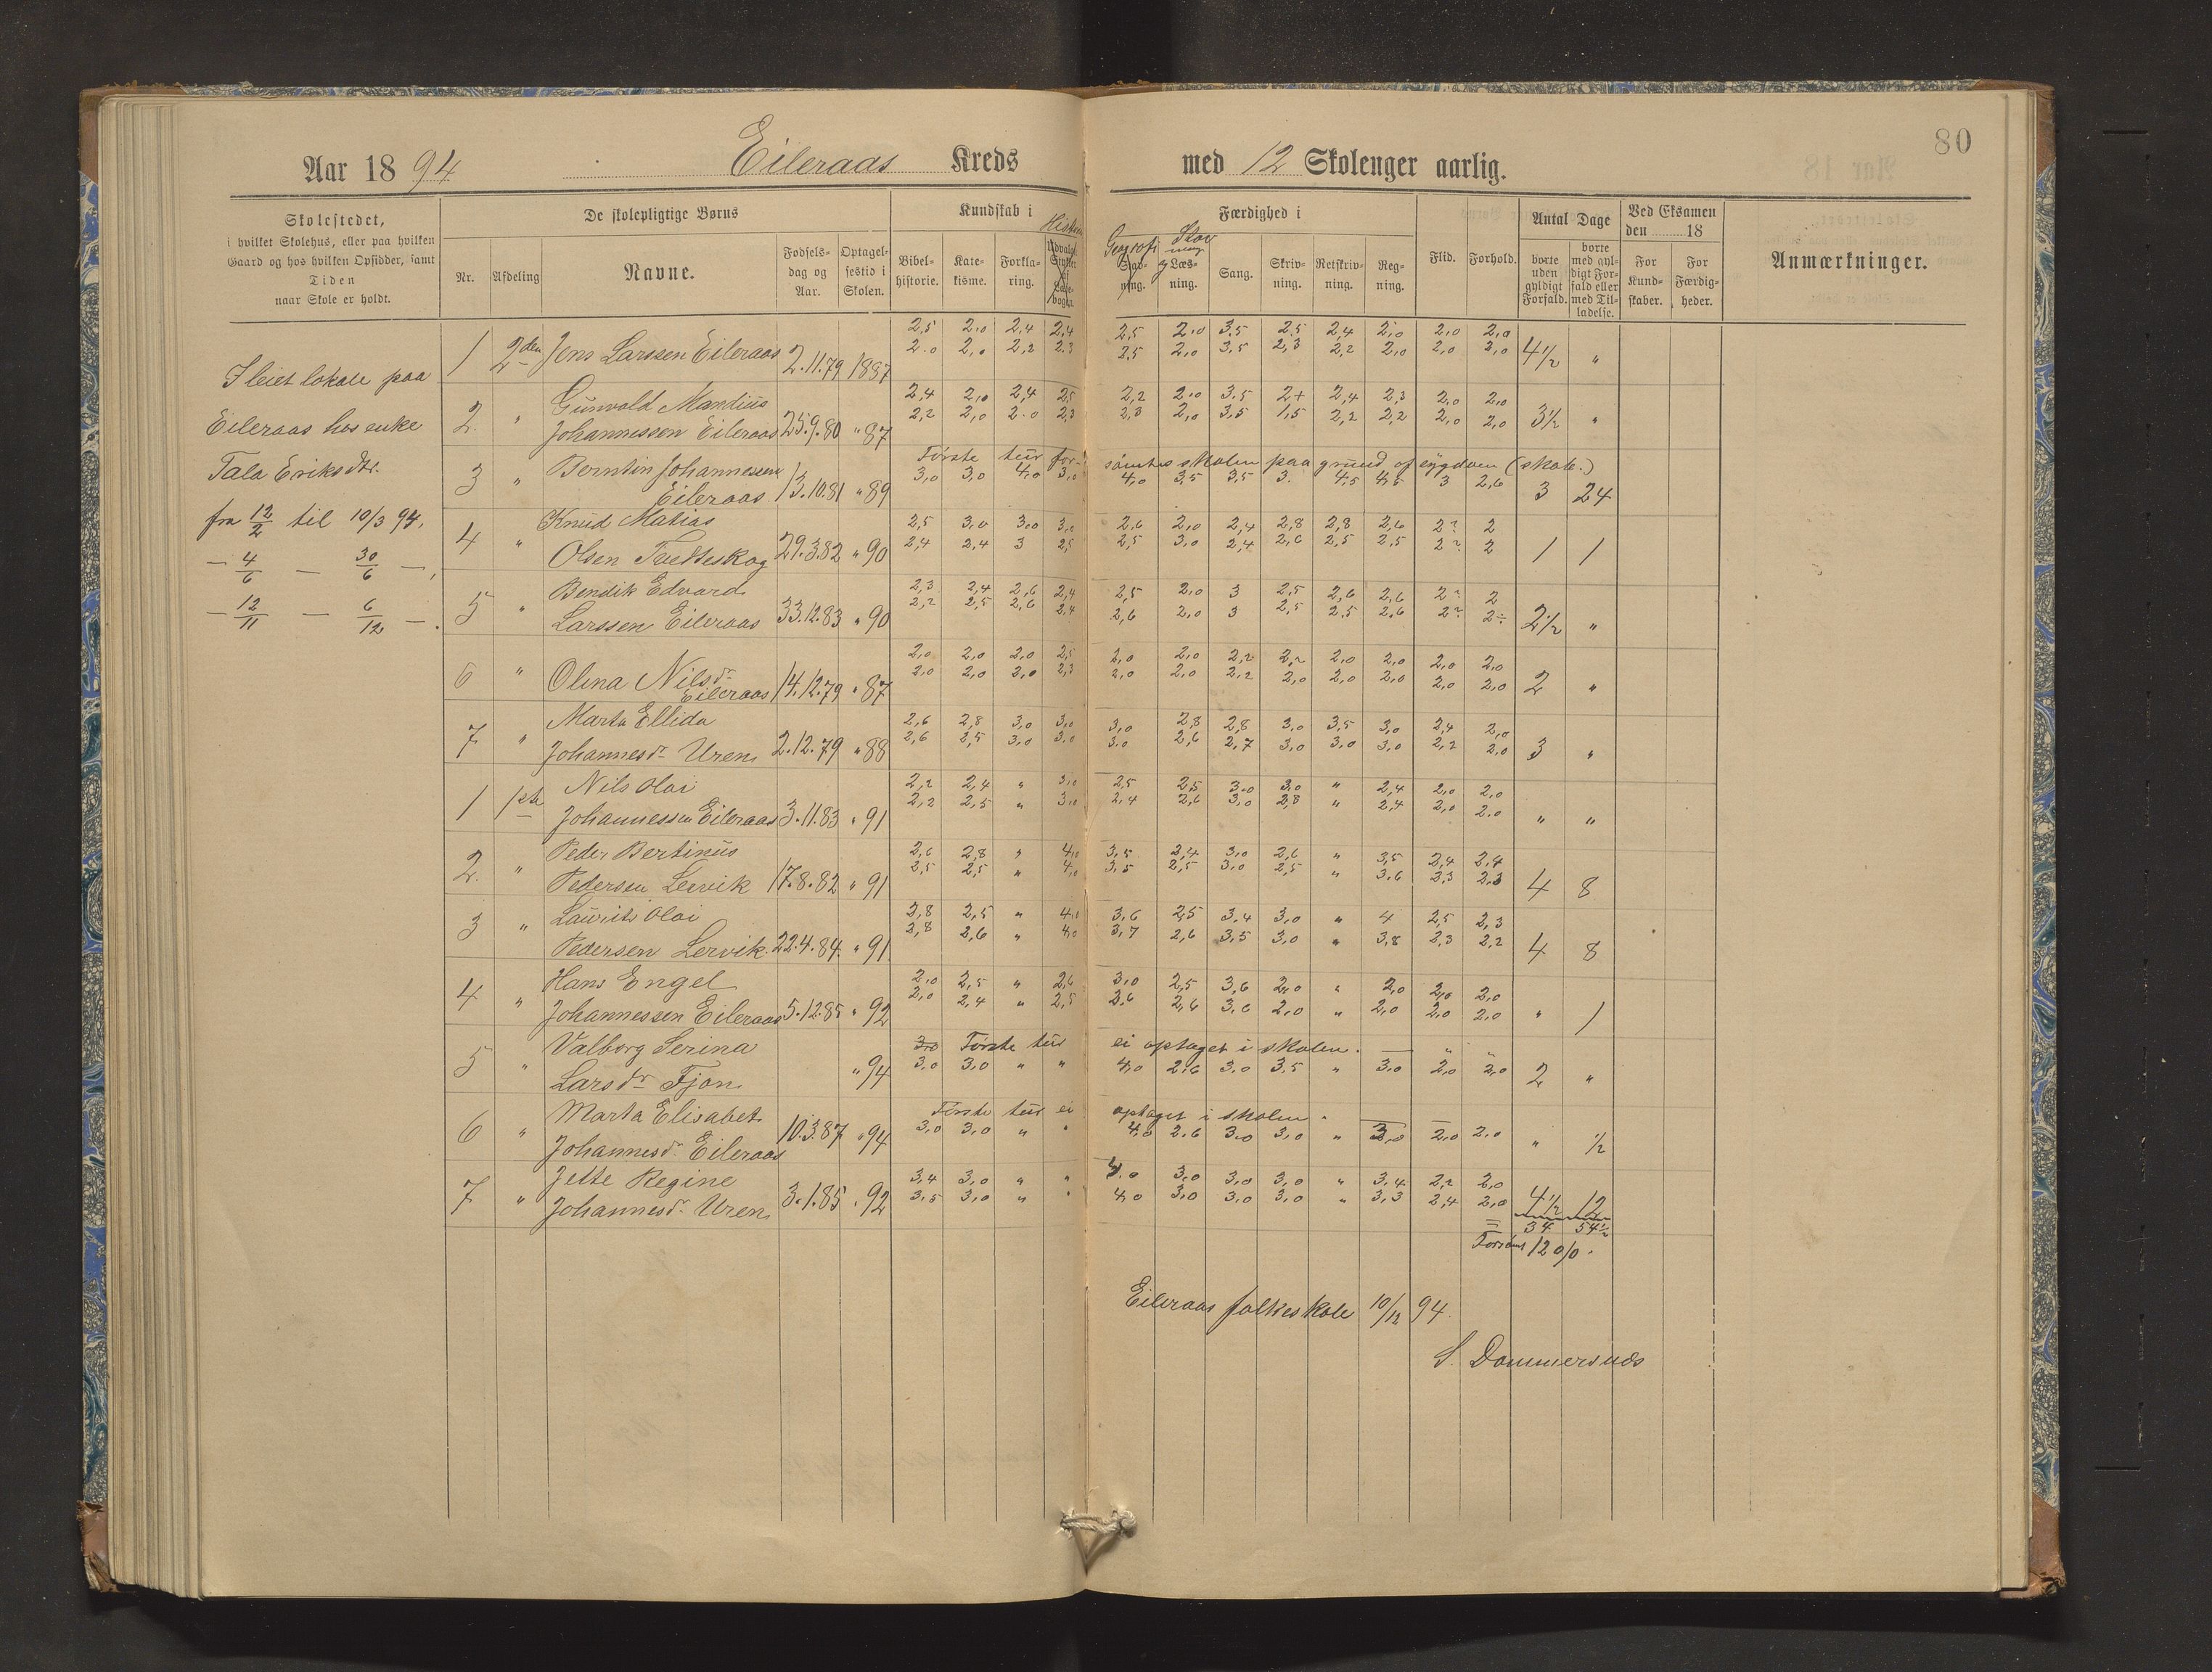 80
Aar 18 94 Eileraas Kreds med 12 Skolenger aarlig.
Skolestedet,
i hvilket Skolehus, eller paa hvilken
Gaard og hos hvilken Opsidder, samt
Tiden
naar Skole er holdt.
De skolepligtige Børns
Nr. Afdeling Navne. Fødsels-dag og Aar. Optagel-sestid i Skolen.
Kundskab i
Bibel-historie. Kate-kisme. Forkla-ring. Udvalgte
Færdighed i
Geografi Stav-ning. og Læs-ning. Sang. Skriv-ning. Retskriv-ning. Reg-ning.
Flid. Forhold.
Antal Dage
borte uden gyldigt Forfald. borte med gyl-digt For-fald eller med Til-ladelse.
Ved Eksamen den 18
For Kund-skaber. For Færdig-heder.
Anmærkninger.
I leiet lokale paa
Eileraas hos enke
Tala Eriksdtr.
fra 12/2 til 10/3 94.
— 4/6 — 30/6 —,
— 12/11 — 6/12 —.
1 2den Jens Larssen Eileraas 2.11.79 1887 2,5 2,0 2,4 2,4 2,5 2,0 3,5 2,5 2,4 2,0 2,0 2,0
2,0 2,0 2,2 2,3 2,5 2,0 3,5 2,3 2,2 2,0 2,0 2,0 4 1/2 "
2. " Gunvald Mandius 2,4 2,0 2,4 2,5 2,2 2,0 3,5 2+ 2,4 2,3 2,0 2,0
Johannessen Eileraas 25.9.80 " 87 2,2 2,0 2,0 2,3 2,3 2,0 3,5 1,5 2,2 2,2 2,0 2,0 3 1/2 "
3 " Berntin Johannessen Første tur for-sømtes skolen paa grund af sygdom (skab.)
Eileraas 13.10.81 " 89 3,0 3,0 4,0 3,0 4,0 3,5 3,5 3. 4,5 4,5 3 2,6 3 24
4 " Knud Matias 2,5 3,0 3,0 3,0 2,6 2,0 2,4 2,8 2,8 2,6 2? 2
Olsen Tvedteskog 29.3.82 " 90 2,4 2,4 3 2,5 2,5 3,0 2,4 2,6 2,5 2,5 2? 2 1 1
5 " Bendik Edvard 2,3 2,4 2,6 2,4 2,5 2,0 3 2,5 2,6 2,6 2? 2
Larssen Eileraas 33.12.83 " 90 2,2 2,5 2,6 2,4 2,6 2,0 3 2,5 2,5 2,6 2? 2÷ 2 1/2 "
6 " Olina Nilsdr 2,0 2,0 2,0 2,5 2,0 2,0 2,2 2,2 2,0 2,0 2,0 2,0
Eileraas 14.12.79 " 87 2,0 2,0 2,0 2,3 2,0 2,0 2,2 2,0 2,0 2,0 2,0 2,0 2 "
7 " Marta Ellida 2,6 2,8 3,0 3,0 3,0 2,8 2,8 3,0 3,5 3,0 2,4 2,0
Johannesdr Uren 2.12.79 " 88 2,6 2,5 3,0 3,0 3,0 2,6 2,7 3,0 3,0 3,0 2,2 2,0 3 "
1 1ste Nils Olai 2,2 2,4 " 3,0 2,5 2,5 3,0 3,0 " 2,4 2,0 2,0
Johannessen Eileraas 3.11.83 " 91 2,2 2,5 " 3,0 2,4 2,6 3,0 2,8 " 2,4 2,0 2,0 " "
2. " Peder Bertinus 2,6 2,8 " 4,0 3,5 2,4 3,0 2,6 " 3,5 2,4 2,4
Pedersen Leirvik 17.8.82 " 91 2,5 2,5 " 4,0 3,5 2,5 3,0 2,5 " 3,6 2,3 2,3 4 8
3 " Laurits Olai 3,8 2,5 " 4,0 3,6 2,5 3,4 3,0 " 4 2,5 2,3
Pedersen Lervik 22.4.84. " 91 3,8 2,6 " 4,0 3,7 2,6 3,5 3,0 " 3,8 2,3 2,2 4 8
4 " Hans Engel 2,0 2,5 " 2,6 3,0 2,5 3,6 2,0 " 2,0 2,0 2,0
Johannessen Eileraas 5.12.85 " 92 2,0 2,4 " 2,5 3,6 2,6 3,6 2,0 " 2,0 2,0 2,0 " 1
5 " Valborg Serina 3,0 Første tur ei optaget i skolen. — " "
Larsdr Fjon " 94 3,0 3,0 " " 4,0 2,6 3,0 3,5 " 3,0 2,0 2,0 2 "
6 " Marta Elisabet Første tur ei optaget i skolen.
Johannesdr Eileraas 10.3.87 " 94 3,0 3,0 " " 4,0 2,6 3,0 3,0 " 3,0 2,0 2,0 " 1/2
7 " Jette Regine 3,4 3,0 " " 4,0 3,0 3,0 3,0 " 3,4 2,2 2,0
Johannesdr. Uren 3.1.85 " 92 3,5 3,0 " " 4,0 3,0 3,0 3,0 " 3,3 2,4 2,0 4 1/2 12
= 34 54 1/2
Forsømt 12 0/0.
Eileraas folkeskole 10/12 94.
S. Dommersnæs